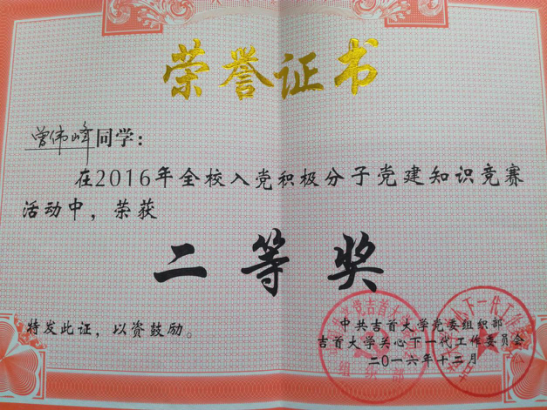 荣誉证书
曾伟峰同学：
在2016年全校入党积极分子党建知识竞赛
活动中，荣获
二等奖
特发此证，以资鼓励。
中共吉首大学党委组织部
吉首大学关心下一代工作委员会
二〇一六年十二月